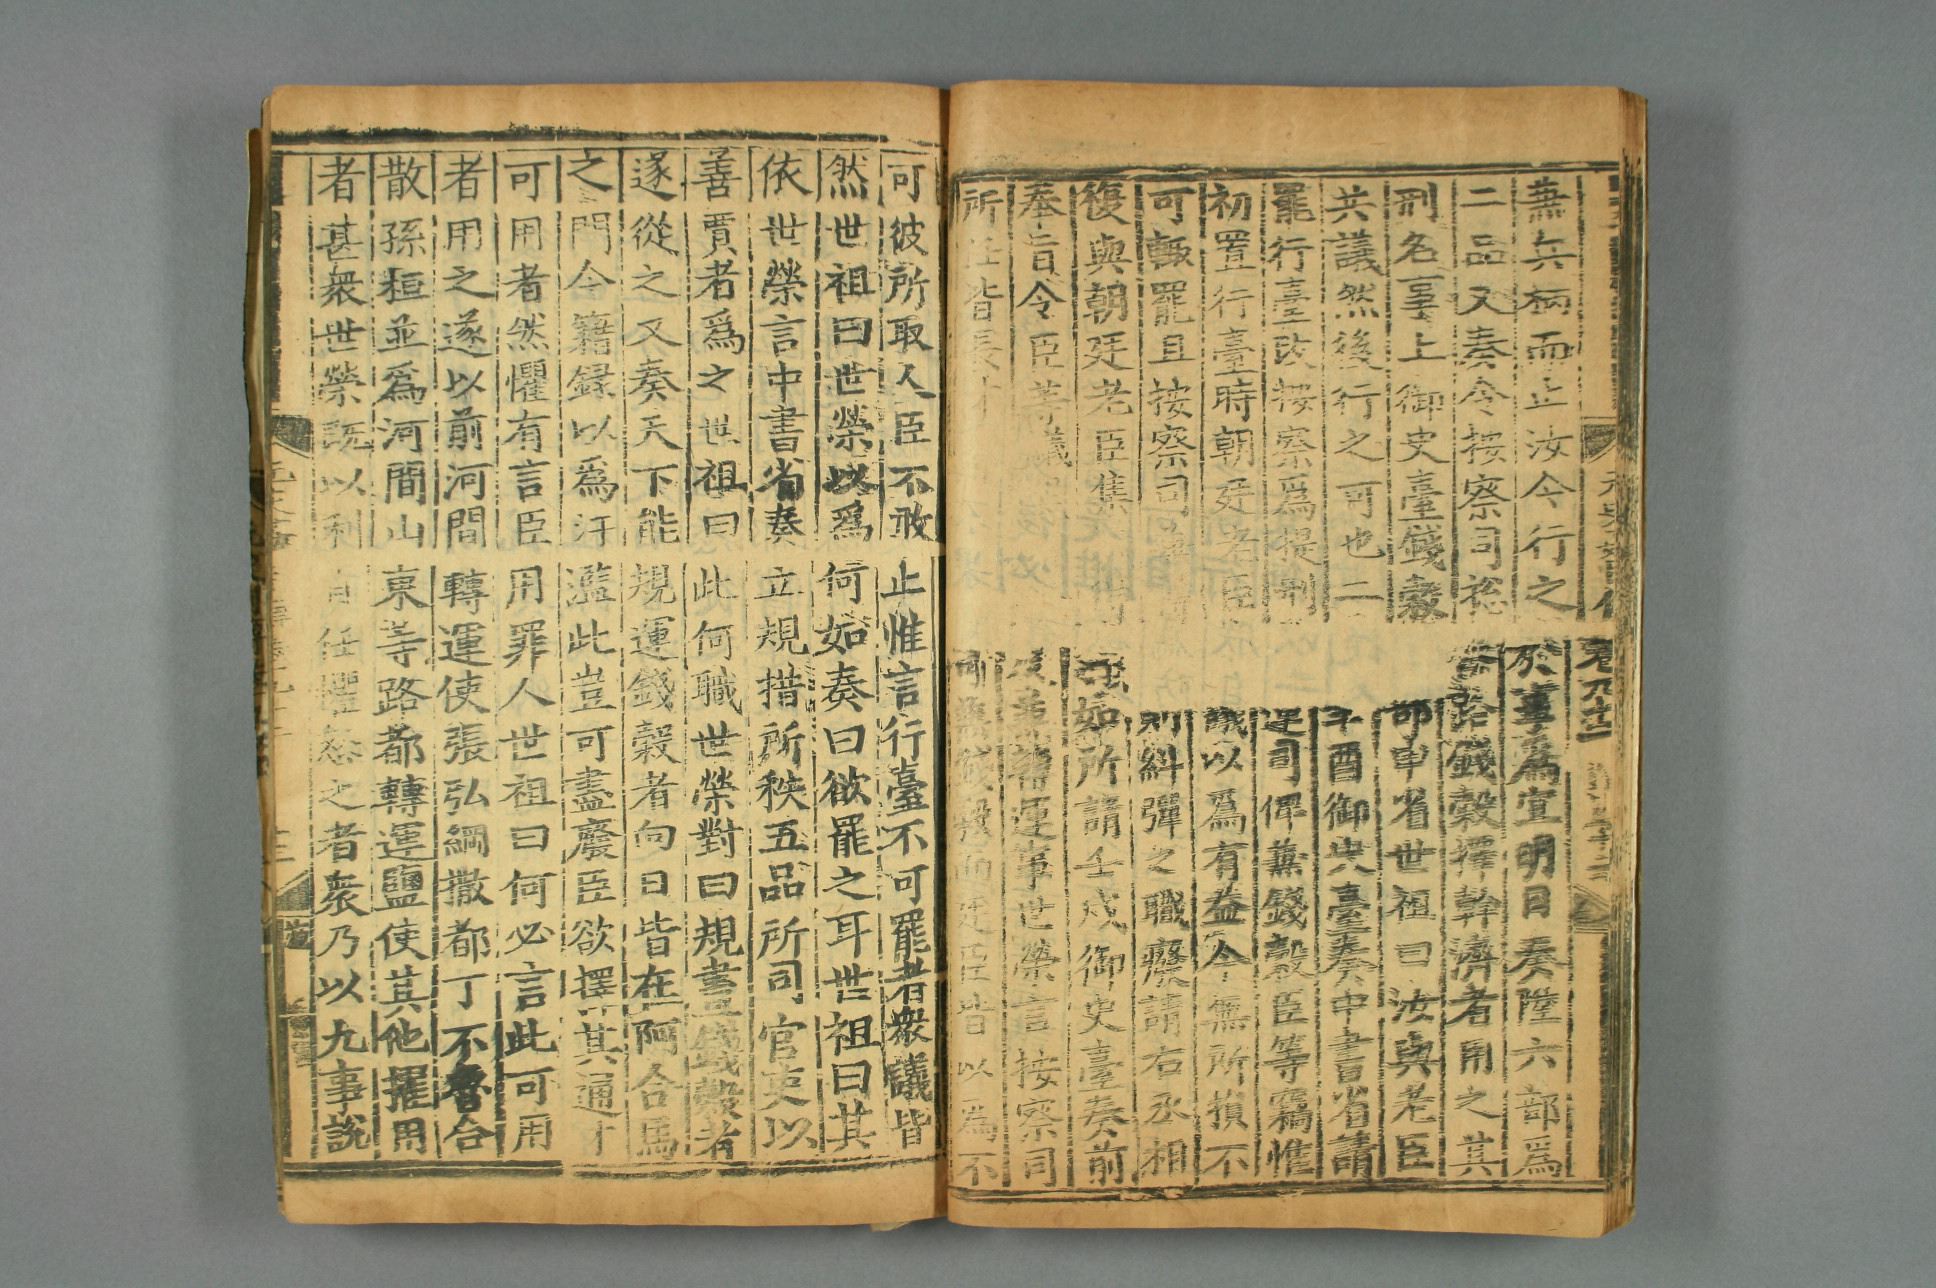 兼兵柄而止汝今行之於事爲宜明日奏陞六部爲
二品又奏令按察司總各路錢穀擇幹濟者用之其
刑名事上御史臺錢穀
申省世祖曰汝與老臣
共議然後行之可也二
酉御史臺奏中書省請
罷行臺改按察爲提刑
司俾兼錢穀臣等竊惟
初置行臺時朝廷老臣
議以爲有益今無所損不
可輒罷且按察司
則糾彈之職廢請右丞相
復與朝廷老臣集議
如所請壬戌御史臺奏前
奉旨令臣等議
兼轉運事世榮言按察司
所任皆長才
錢穀
廷臣皆以爲不
可彼所取人臣不敢止惟言行臺不可罷者衆議皆
然世祖曰世榮以爲何如奏曰欲罷之耳世祖曰其
依世榮言中書省奏立規措所秩五品所司官吏以
善賈者爲之世祖曰此何職世榮對曰規畫錢穀者
遂從之又奏天下能規運錢穀者向日皆在阿合馬
之門今籍錄以爲汙濫此豈可盡廢臣欲擇其通才
可用者然懼有言臣用罪人世祖曰何必言此可用
者用之遂以前河間轉運使張弘綱撒都丁不魯合
散孫桓並爲河間山東等路都轉運鹽使其他擢用
者甚衆世榮既以利自任懼怒之者衆乃以九事說